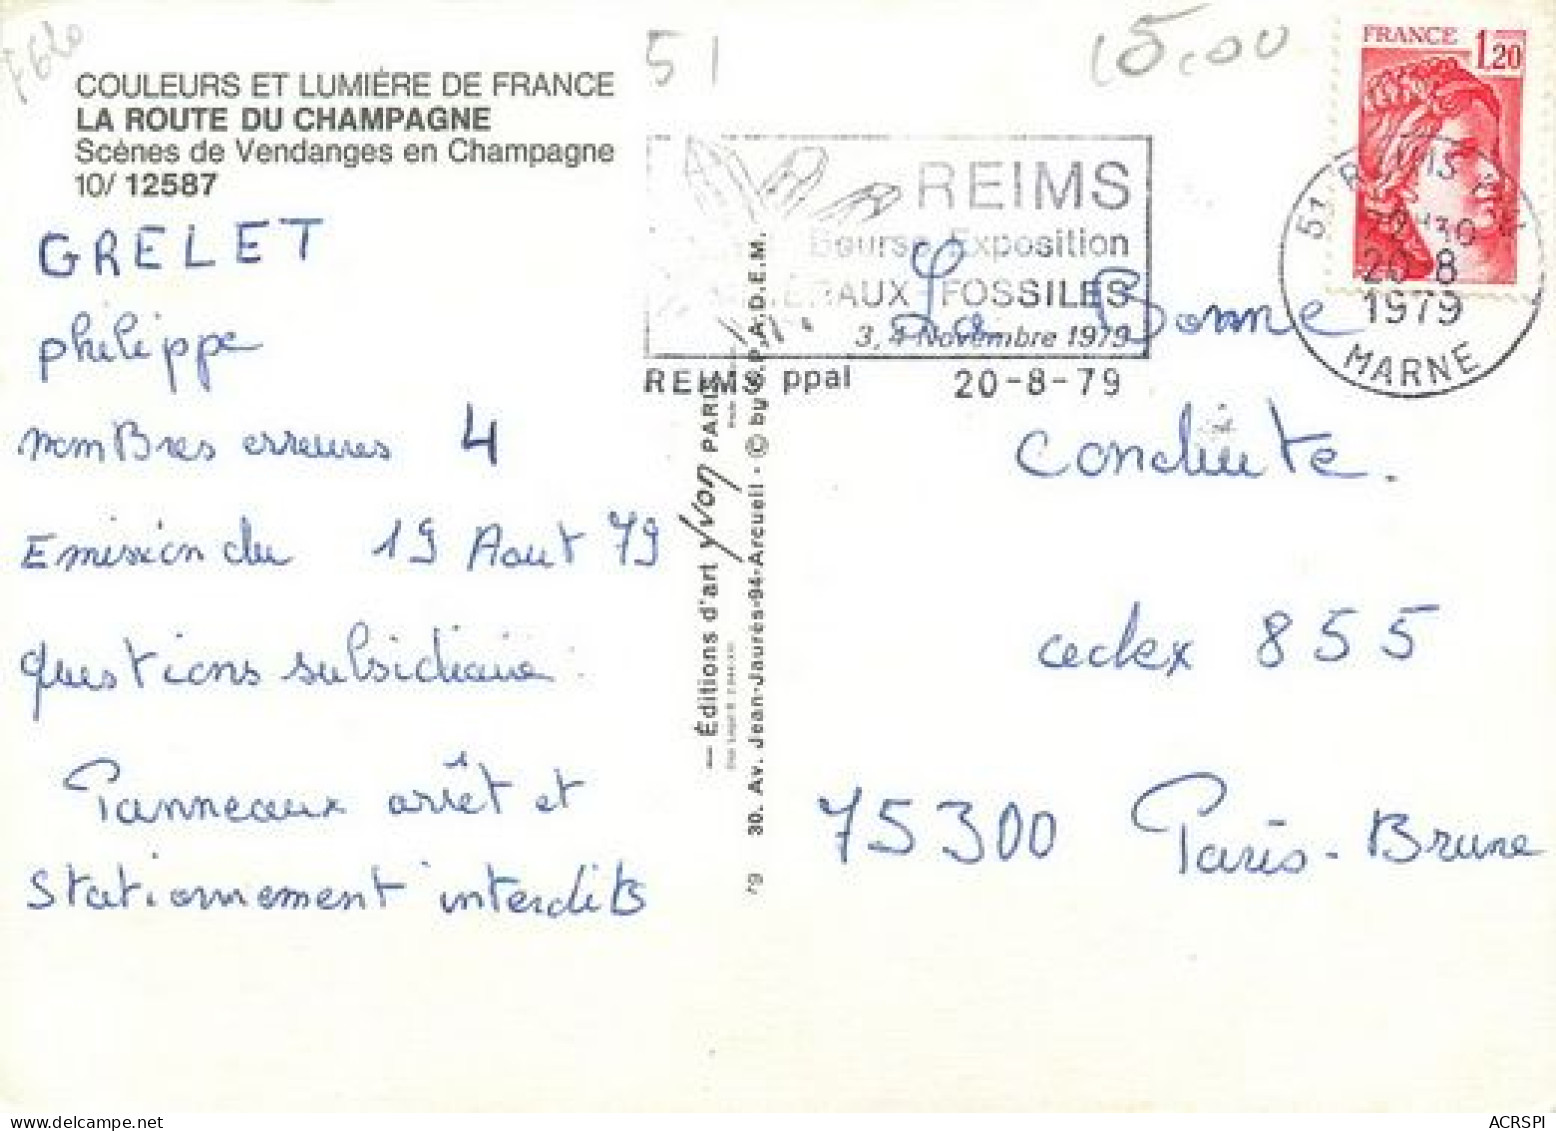 7620
51
15,00
COULEURS ET LUMIÈRE DE FRANCE
LA ROUTE DU CHAMPAGNE
Scènes de Vendanges en Champagne
10/ 12587
GRELET
philippe
nomBres erreures 4
Emission du 19 Aout 79
questions subsidiaire :
Panneaux arrêt et
Stationnement interdits
— Éditions d'art yvon PARIS
30. Av. Jean-Jaurès-94-Arcueil - © by S.P.A.D.E.M.
REIMS
Bourse Exposition
MINÉRAUX FOSSILES
3, 4 Novembre 1979
REIMS ppal 20-8-79
FRANCE 1,20
51 REIMS
20-8
1979
MARNE
La Bonne
Conduite.
cedex 855
75300 Paris - Brune
ACRSPI